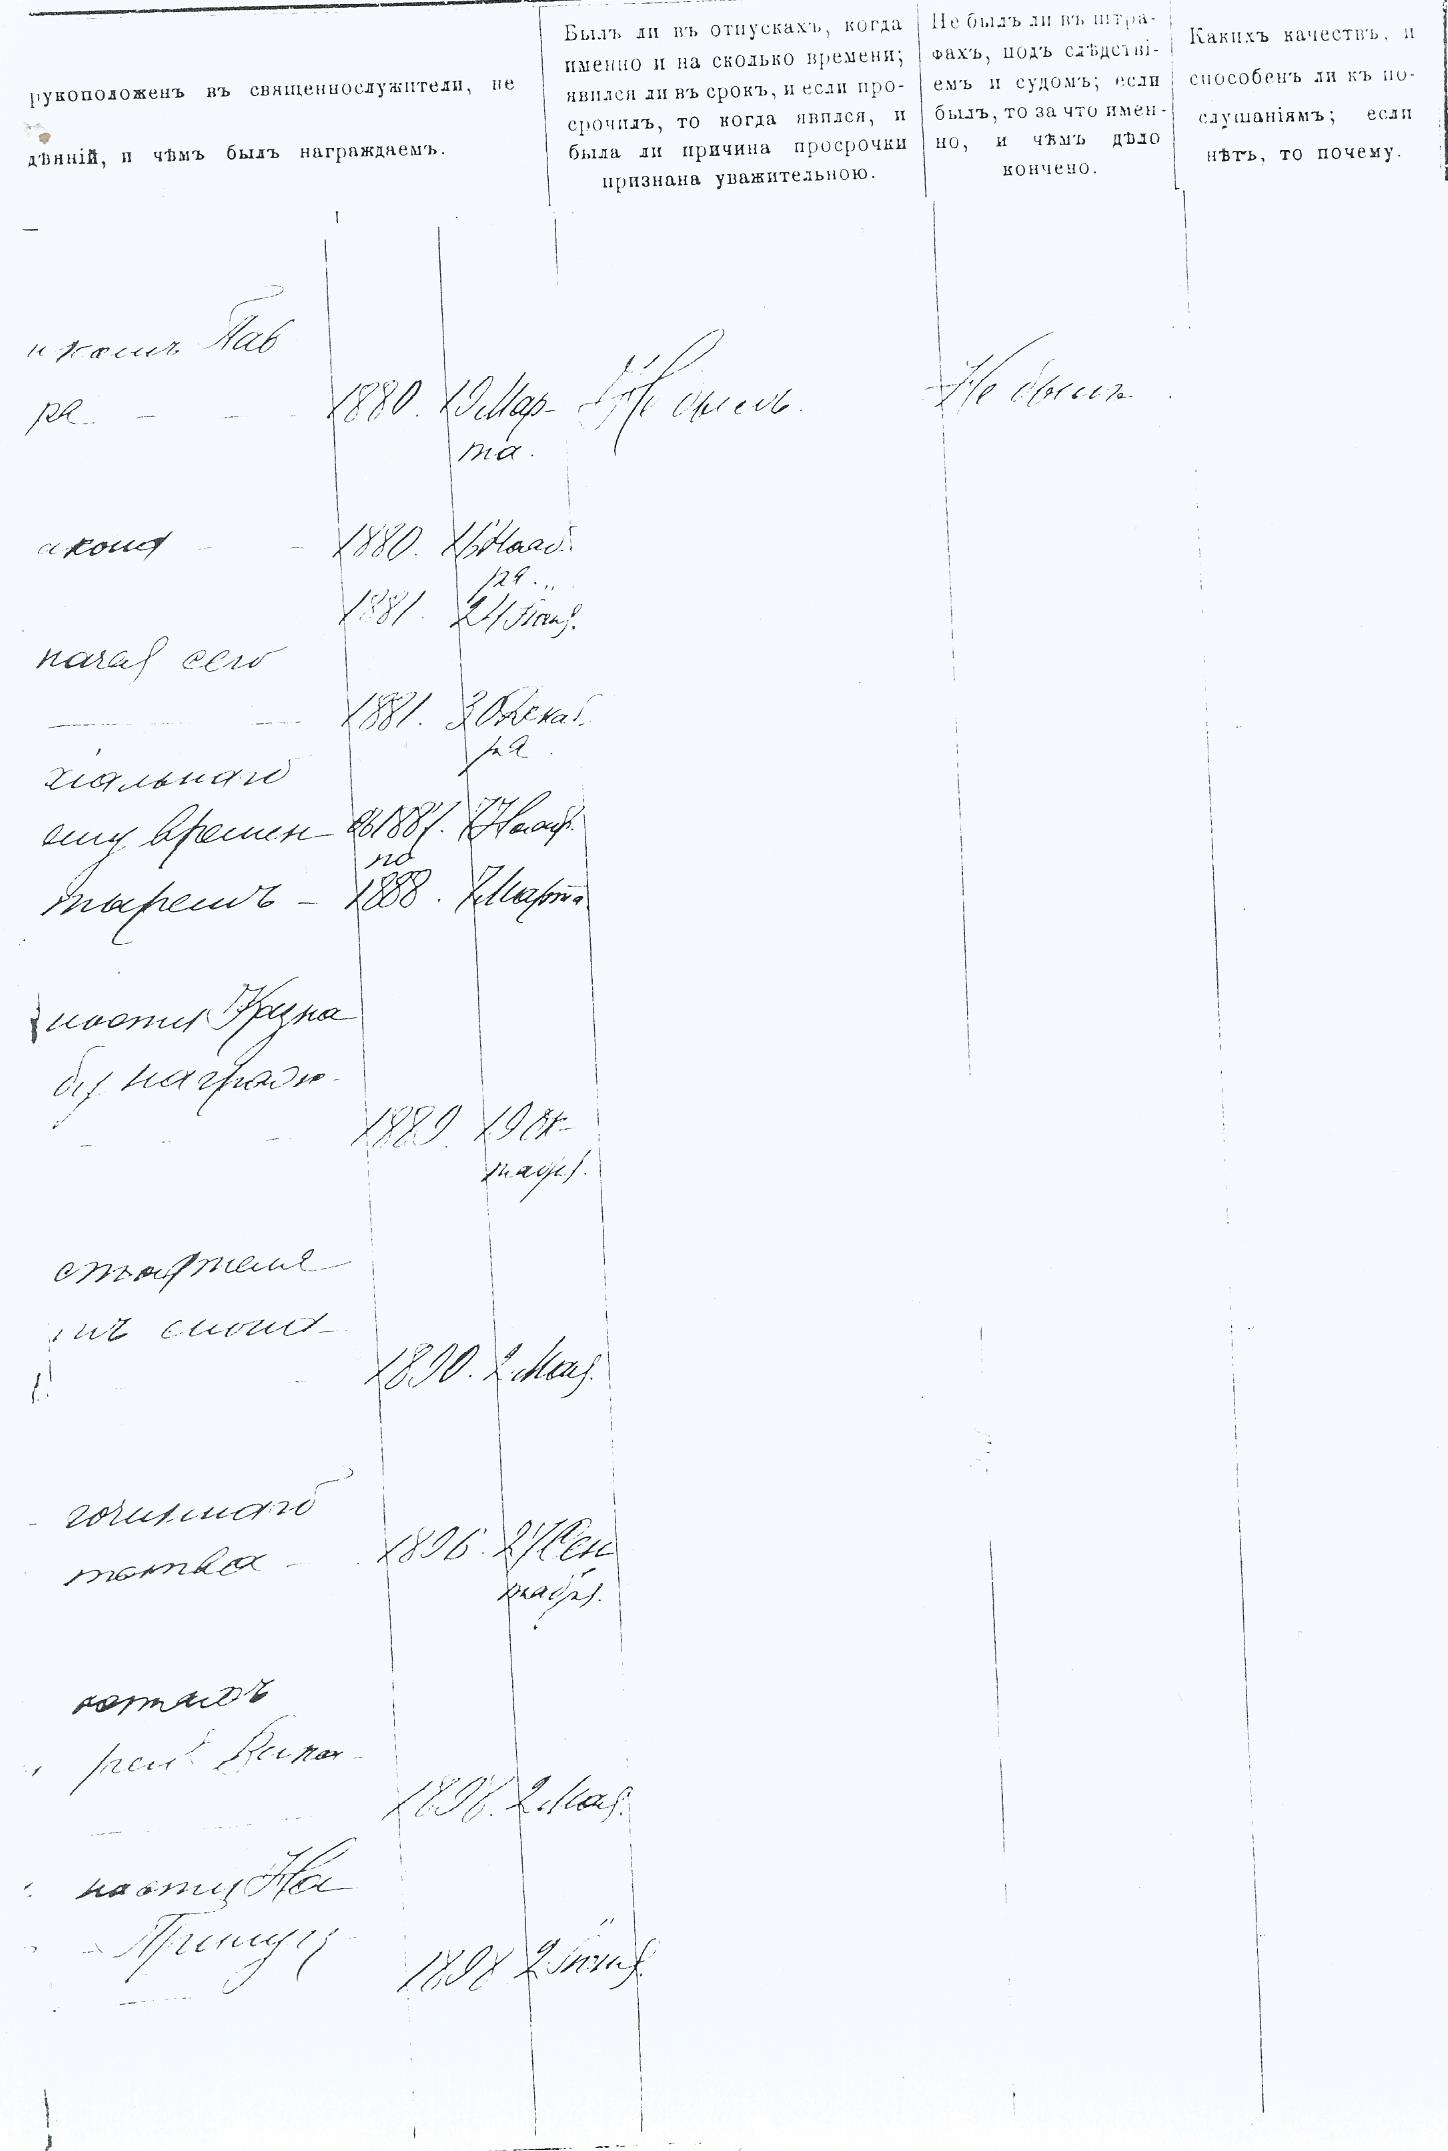 рукоположенъ въ священнослужители, не
дѣяній, и чѣмъ былъ награждаемъ.
Былъ ли въ отпускахъ, когда
именно и на сколько времени;
явился ли въ срокъ, и если про-
срочилъ, то когда явился, и
была ли причина просрочки
признана уважительною.
Не былъ ли въ штра-
фахъ, подъ слѣдстві-
емъ и судомъ; если
былъ, то за что имен-
но, и чѣмъ дѣло
кончено.
Какихъ качествъ, и
способенъ ли къ по-
слушаніямъ; если
нѣтъ, то почему.
Пав
ра 1880. 19 Мар- Не былъ. Не былъ
та.
акона 1880. 16 Нояб.
ря.
1881. 24 Іюня.
начал сего
1881. 30 Декаб.
ря
хіальнаго
ему времен съ 1887. 7 Нояб.
по
таремъ 1888. 7 Марта
ности Казна
бу награж-
1889. 19 Ок-
тябр.
1890. 2 Мая.
гочиннаго
тства 1896. 27 Сен
тября.
1898. 2 Мая.
ности На
1898 2 Іюня.